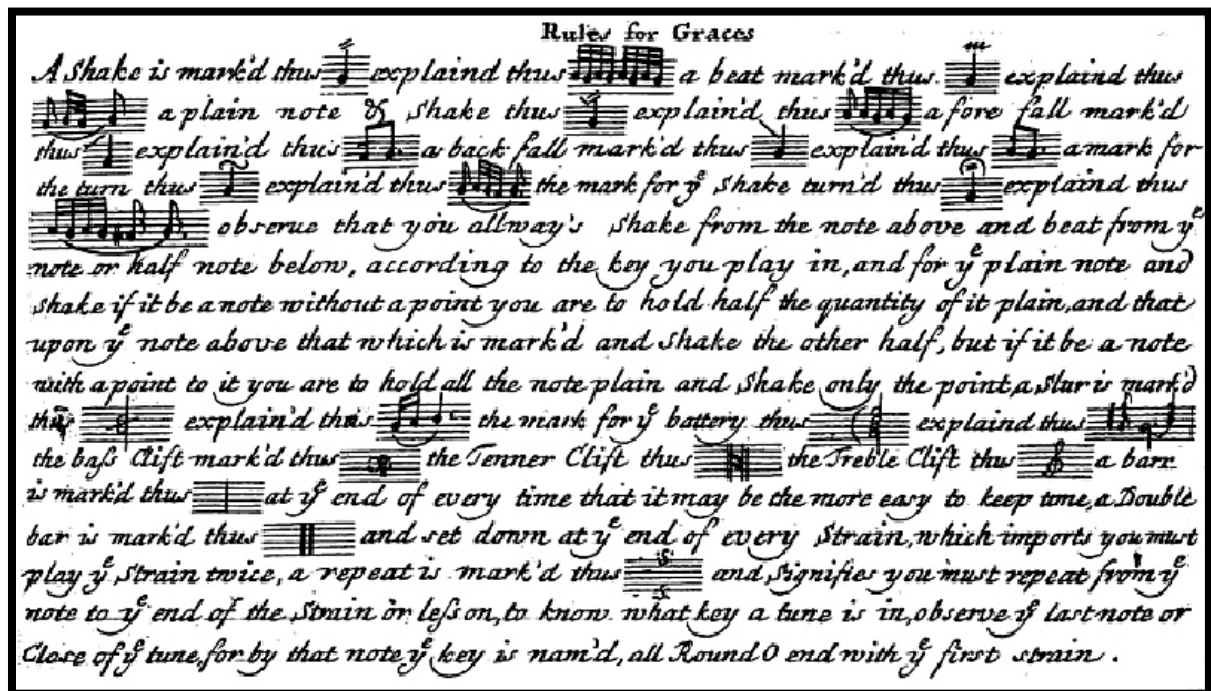 Rules for Graces
A Shake is mark'd thus explaind thus a beat mark'd thus. explaind thus
a plain note & Shake thus explain'd thus a fore fall mark'd
thus explain'd thus a back fall mark'd thus explain'd thus a mark for
the turn thus explain'd thus the mark for yᵉ Shake turn'd thus explaind thus
observe that you allway's Shake from the note above and beat from yᵉ
note or half note below, according to the key you play in, and for yᵉ plain note and
Shake if it be a note without a point you are to hold half the quantity of it plain, and that
upon yᵉ note above that which is mark'd and Shake the other half, but if it be a note
with a point to it you are to hold all the note plain and Shake only the point, a Slur is mark'd
thus explain'd thus the mark for yᵉ battery thus explaind thus
the baſs Clift mark'd thus the Tenner Clift thus the Treble Clift thus a barr
is mark'd thus at yᵉ end of every time that it may be the more easy to keep time, a Double
bar is mark'd thus and set down at yᵉ end of every Strain, which imports you must
play yᵉ Strain twice, a repeat is mark'd thus and Signifies you must repeat from yᵉ
note to yᵉ end of the Strain or leſson, to know what key a tune is in, observe yᵉ last note or
Close of yᵉ tune, for by that note yᵉ key is nam'd, all Round O end with yᵉ first strain.